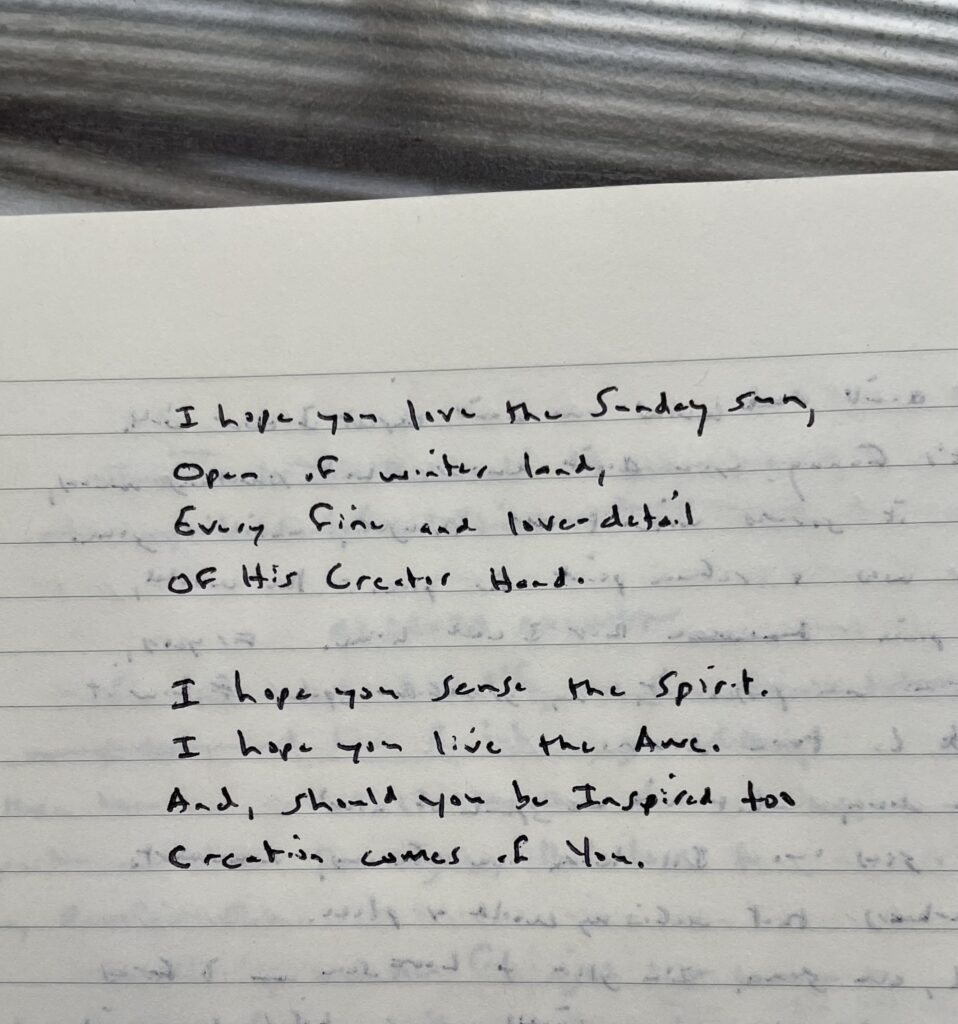 I hope you love the Sunday sun,
Open of winter land,
Every fine and love-detail
OF His Creator Hand.
I hope you sense the Spirit.
I hope you live the Awe.
And, should you be Inspired too
Creation comes of You.